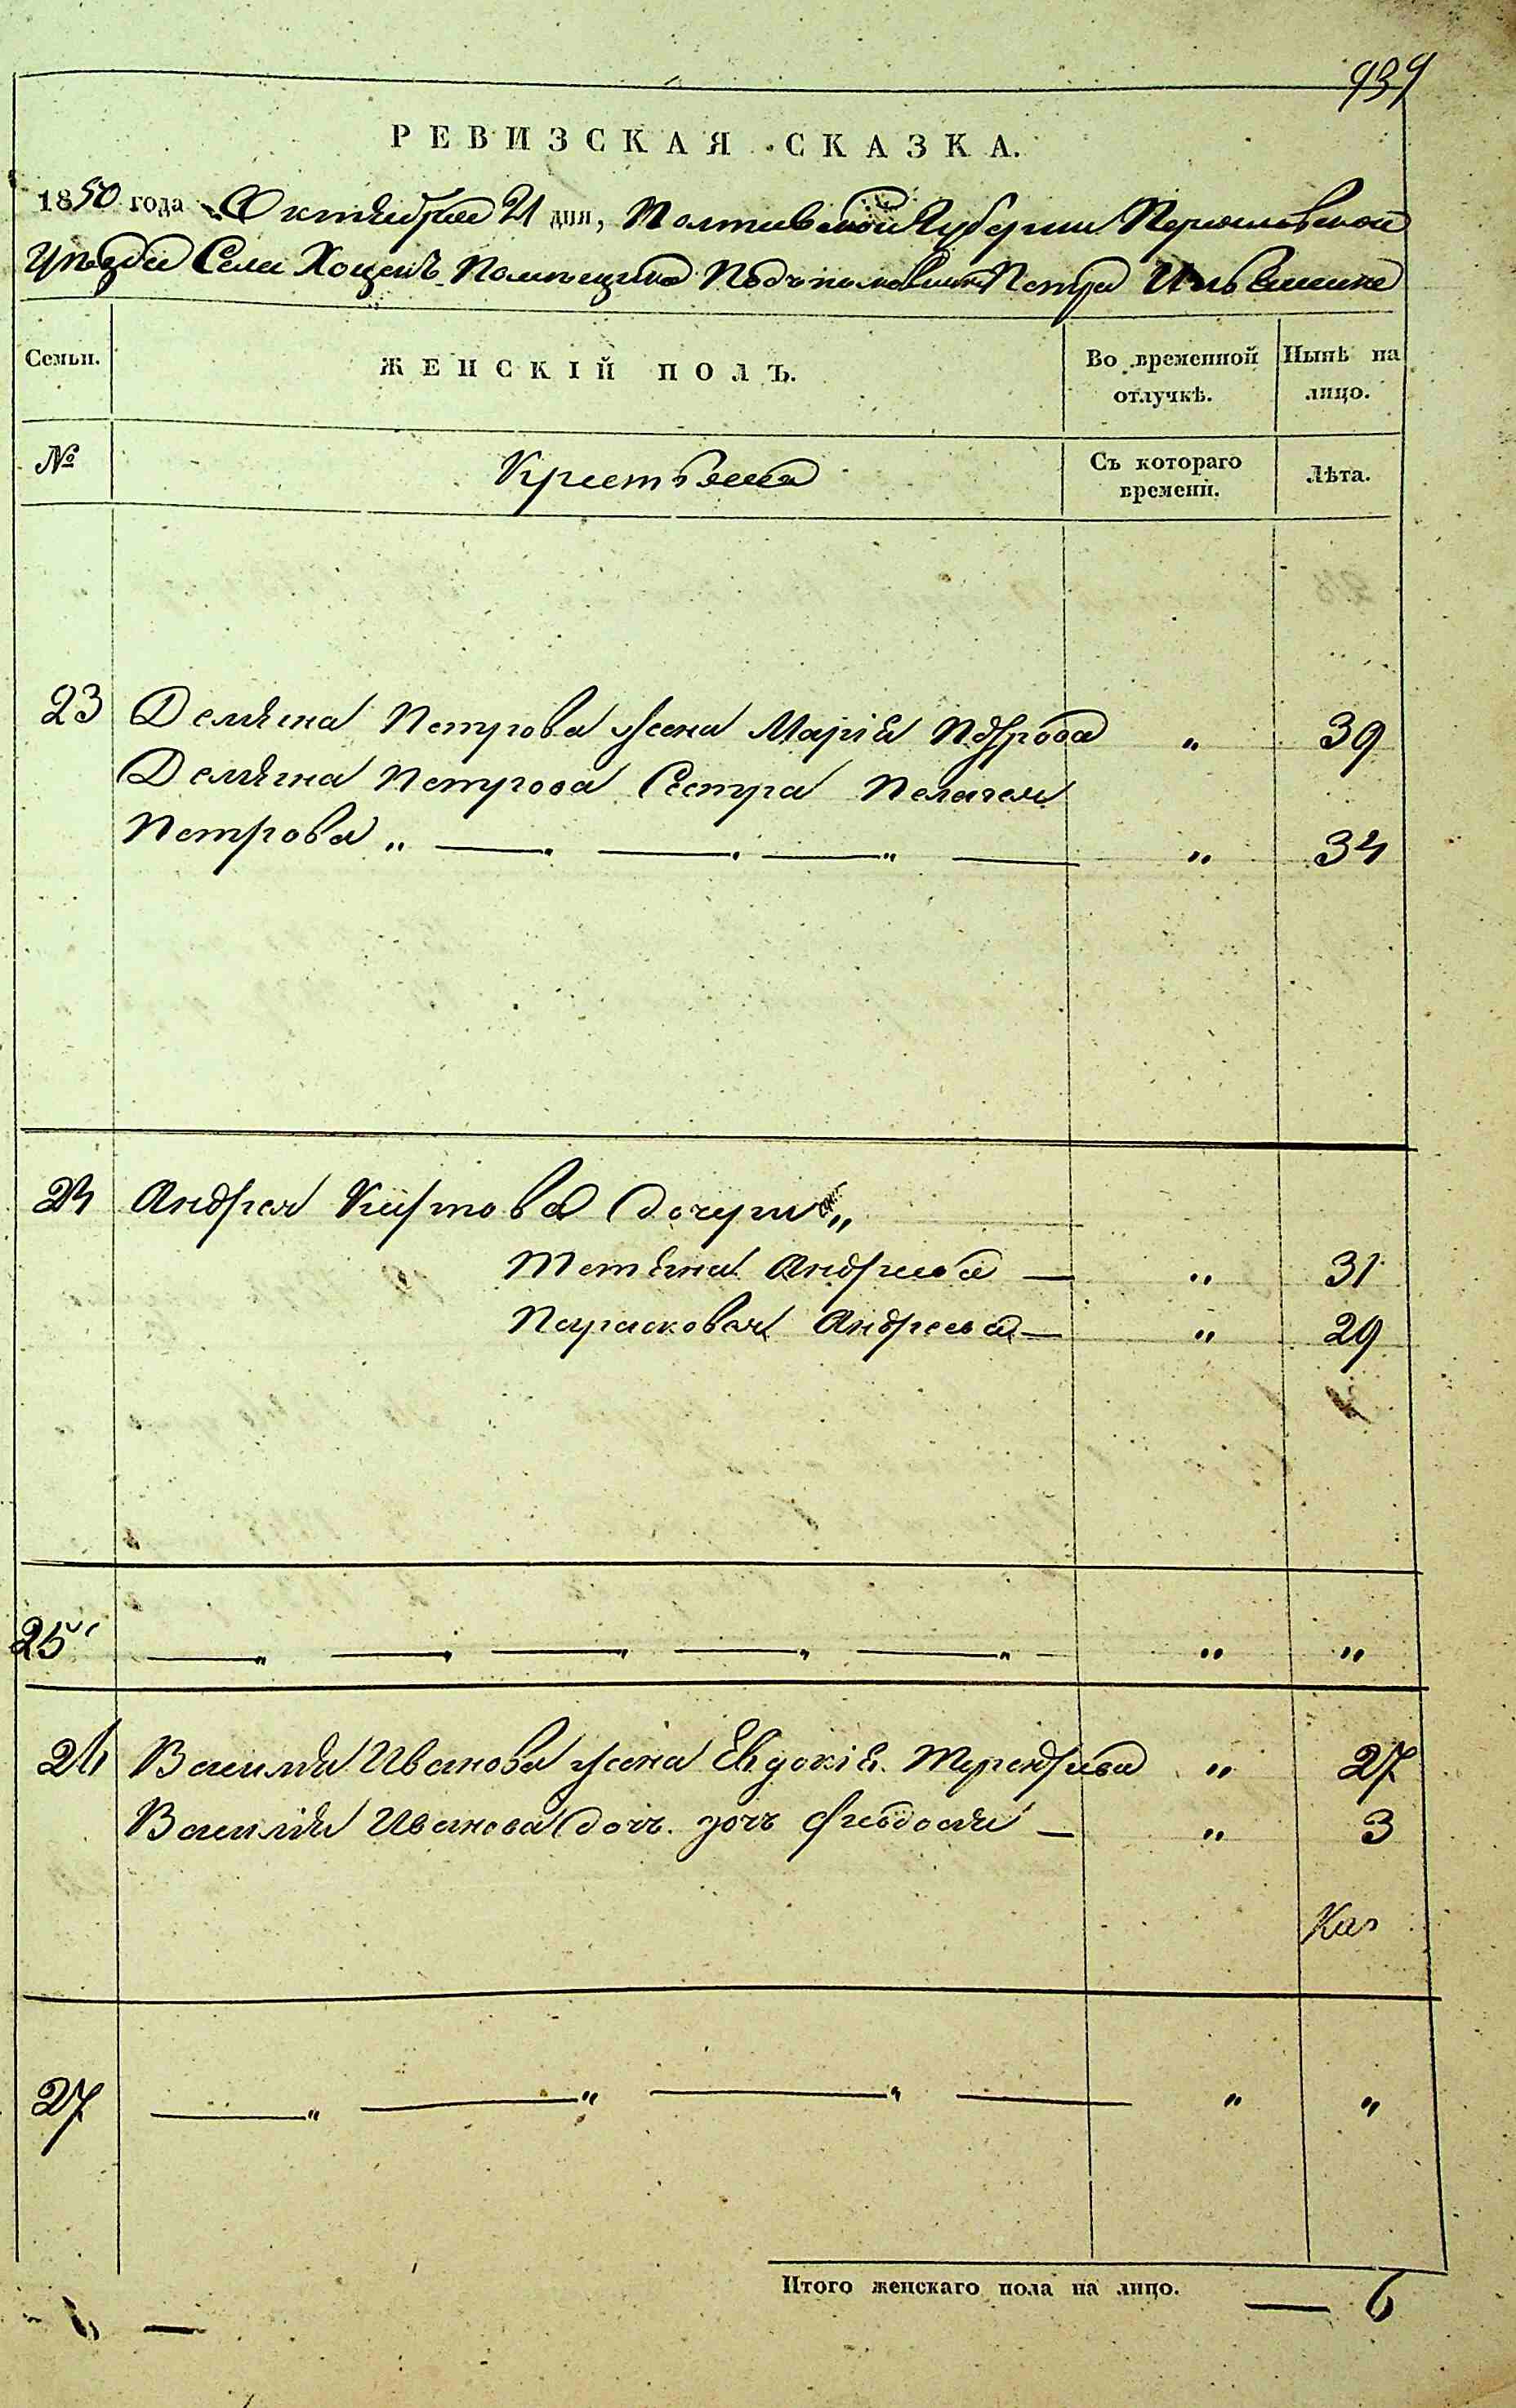 939
РЕВИЗСКАЯ СКАЗКА.
1850 года Октября 21 дня, Полтавской Губернии Переяславской
Уѣзда Села Хоцекъ Помѣщика Подполковника Петра
Семьи.
ЖЕНСКІЙ ПОЛЪ.
Во временной отлучкѣ.
Нынѣ на лицо.
№
Крестьяне
Съ котораго времени.
Лѣта.
23 Демяна Петрова жена Марія „ 39
Демяна Петрова Сестра Пелагея
Петрова „ — „ — „ — „ — „ 34
24 Андрея Дочери „
Татяна Андреева — „ 31
Парасковея Андреева — „ 29
25 — „ — „ — „ — „ — „ — „ „
26 Василия Иванова жена Евдокія „ 27
Василия Иванова дочь Феодосия — „ 3
27 — „ — „ — „ — „ „
Итого женскаго пола на лицо. — 6